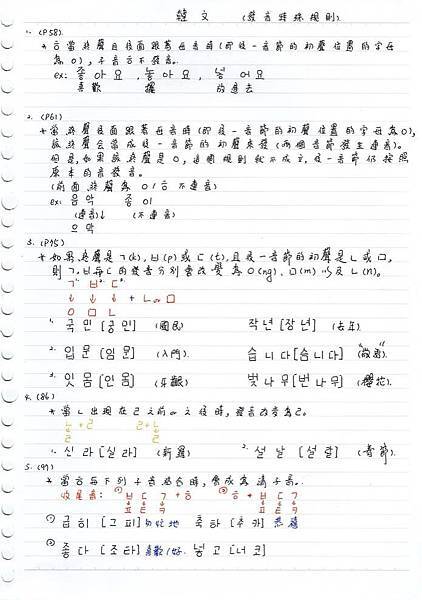 韓文 (發音特殊規則)
1. (P58).
* ㅎ當終聲且後面跟著母音時(即後一音節的初聲位置的字母
為ㅇ), ㅎ子音不發音.
ex: 좋아요, 놓아요, 넣어요
喜歡 擺 放進去
2. (P61)
* 當終聲後面跟著母音時(即後一音節的初聲位置的字母為ㅇ),
該終聲會當成後一音節的初聲來發(兩個音節發生連音).
但是, 如果該終聲是ㅇ, 這個規則就不成立, 後一音節仍按照
原本的音發音.
(前面終聲為ㅇ/ㅎ不連音)
ex: 음악 종이
(連音)↓ (不連音)
으막
3. (P75)
* 如果終聲是ㄱ(k), ㅂ(p)或ㄷ(t), 且後一音節的初聲是ㄴ或ㅁ,
則ㄱ.ㅂ與ㄷ的發音分別會改變為ㅇ(ng). ㅁ(m)以及ㄴ(n).
ㄱ ㅂ ㄷ
↓ ↓ ↓ + ㄴorㅁ
ㅇ ㅁ ㄴ
1. 국민[궁민] (國民) 작년[장년] (去年).
2. 입문[임문] (入門). 습니다[슴니다]
3. 잇몸[인몸] (牙齦) 벚나무[번나무] (櫻花).
4. (86)
* 當ㄴ出現在ㄹ之前or之後時, 發音改變為ㄹ.
ㄴ+ㄹ ㄹ+ㄴ
1. 신라[실라] (新羅) 2. 설날[설랄] (春節).
5. (91)
* 當ㅎ與下列子音結合時, 會成為
收尾音: ① ㅂㄷㄱ+ㅎ ② ㅎ+ㅂㄷㄱ
ㅍㅌㅋ ㅍㅌㅋ
① 급히[그피] 축하[추카] 恭禧
② 좋다[조타] 喜歡/好. 넣고[너코]